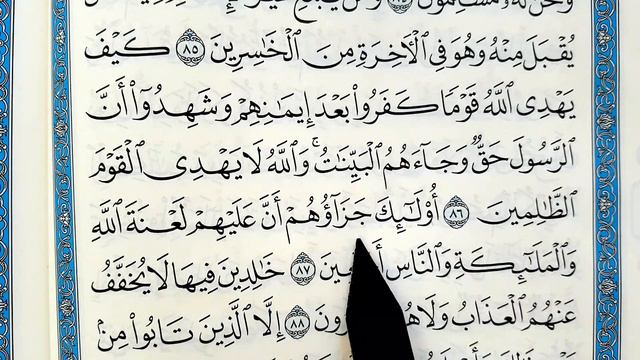 وَنَحْنُ لَهُۥ مُسْلِمُونَ ٨٤ وَمَن يَبْتَغِ غَيْرَ
يُقْبَلَ مِنْهُ وَهُوَ فِى ٱلْءَاخِرَةِ مِنَ ٱلْخَٰسِرِينَ ٨٥ كَيْفَ
يَهْدِى ٱللَّهُ قَوْمًا كَفَرُوا۟ بَعْدَ إِيمَٰنِهِمْ وَشَهِدُوٓا۟ أَنَّ
ٱلرَّسُولَ حَقٌّ وَجَآءَهُمُ ٱلْبَيِّنَٰتُ ۚ وَٱللَّهُ لَا يَهْدِى ٱلْقَوْمَ
ٱلظَّٰلِمِينَ ٨٦ أُو۟لَٰٓئِكَ جَزَآؤُهُمْ أَنَّ عَلَيْهِمْ لَعْنَةَ ٱللَّهِ
وَٱلْمَلَٰٓئِكَةِ وَٱلنَّاسِ ٨٧ خَٰلِدِينَ فِيهَا لَا يُخَفَّفُ
عَنْهُمُ ٱلْعَذَابُ وَلَا ٨٨ إِلَّا ٱلَّذِينَ تَابُوا۟ مِنۢ